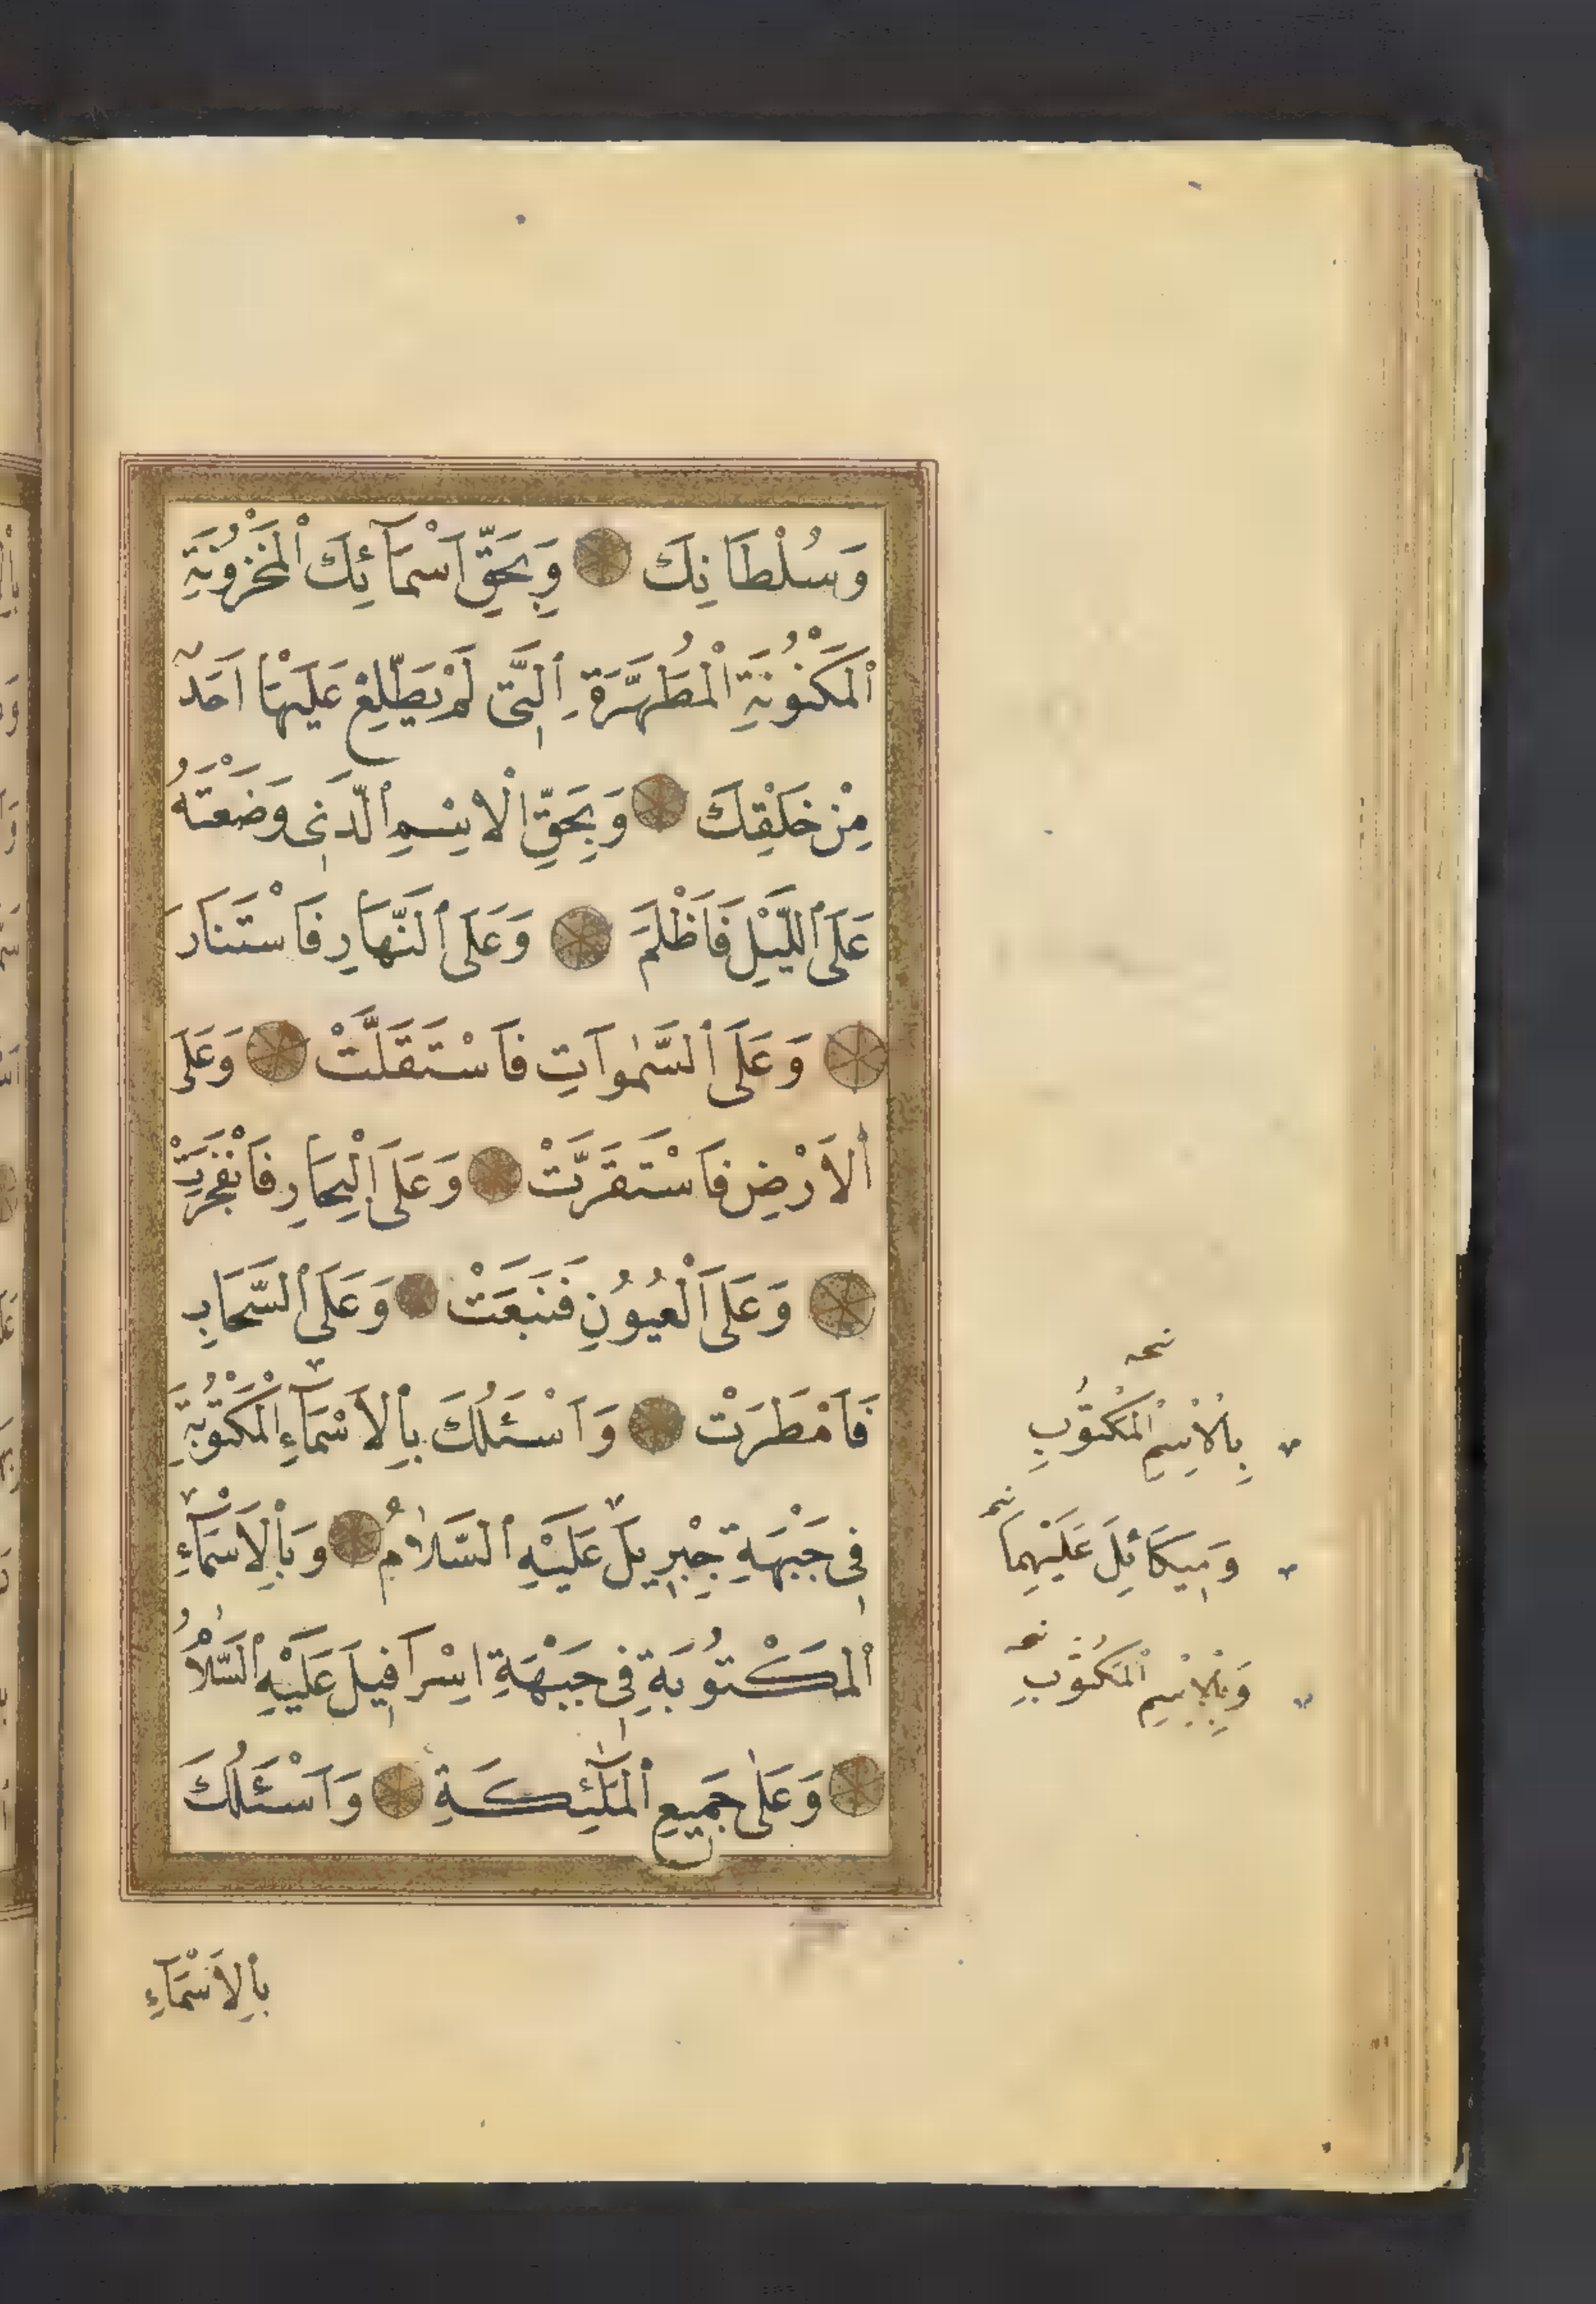 وَسُلْطَانِكَ وَبِحَقِّ اَسْمَآئِكَ ٱلْمَخْزُونَةِ
ٱلْمَكْنُونَةِ ٱلْمُطَهَّرَةِ ٱلَّتِى لَمْ يَطَّلِعْ عَلَيْهَا اَحَدٌ
مِنْ خَلْقِكَ وَبِحَقِّ ٱلْاِسْمِ ٱلَّذِى وَضَعْتَهُ
عَلَى ٱللَّيْلِ فَاَظْلَمَ وَعَلَى ٱلنَّهَارِ فَاسْتَنَارَ
وَعَلَى ٱلسَّمٰوَاتِ فَاسْتَقَلَّتْ وَعَلَى
ٱلاَرْضِ فَاسْتَقَرَّتْ وَعَلَى ٱلْبِحَارِ فَانْفَجَرَتْ
وَعَلَى ٱلْعُيُونِ فَنَبَعَتْ وَعَلَى ٱلسَّحَابِ
فَاَمْطَرَتْ وَاَسْـَٔلُكَ بِٱلاَسْمَآءِ ٱلْمَكْتُوبَةِ
فِى جَبْهَةِ جِبْرِيلَ عَلَيْهِ ٱلسَّلاٰمُ وَبِٱلاَسْمَآءِ
ٱلْمَكْتُوبَةِ فِى جَبْهَةِ اِسْرَافِيلَ عَلَيْهِ ٱلسَّلاٰمُ
وَعَلٰى جَمِيعِ ٱلْمَلٰٓئِكَةِ وَاَسْـَٔلُكَ
بِٱلاَسْمَآءِ
بِٱلْاِسْمِ ٱلْمَكْتُوبِ
وَمِيكَائِلَ عَلَيْهِمَا
وَبِٱلْاِسْمِ ٱلْمَكْتُوبِ